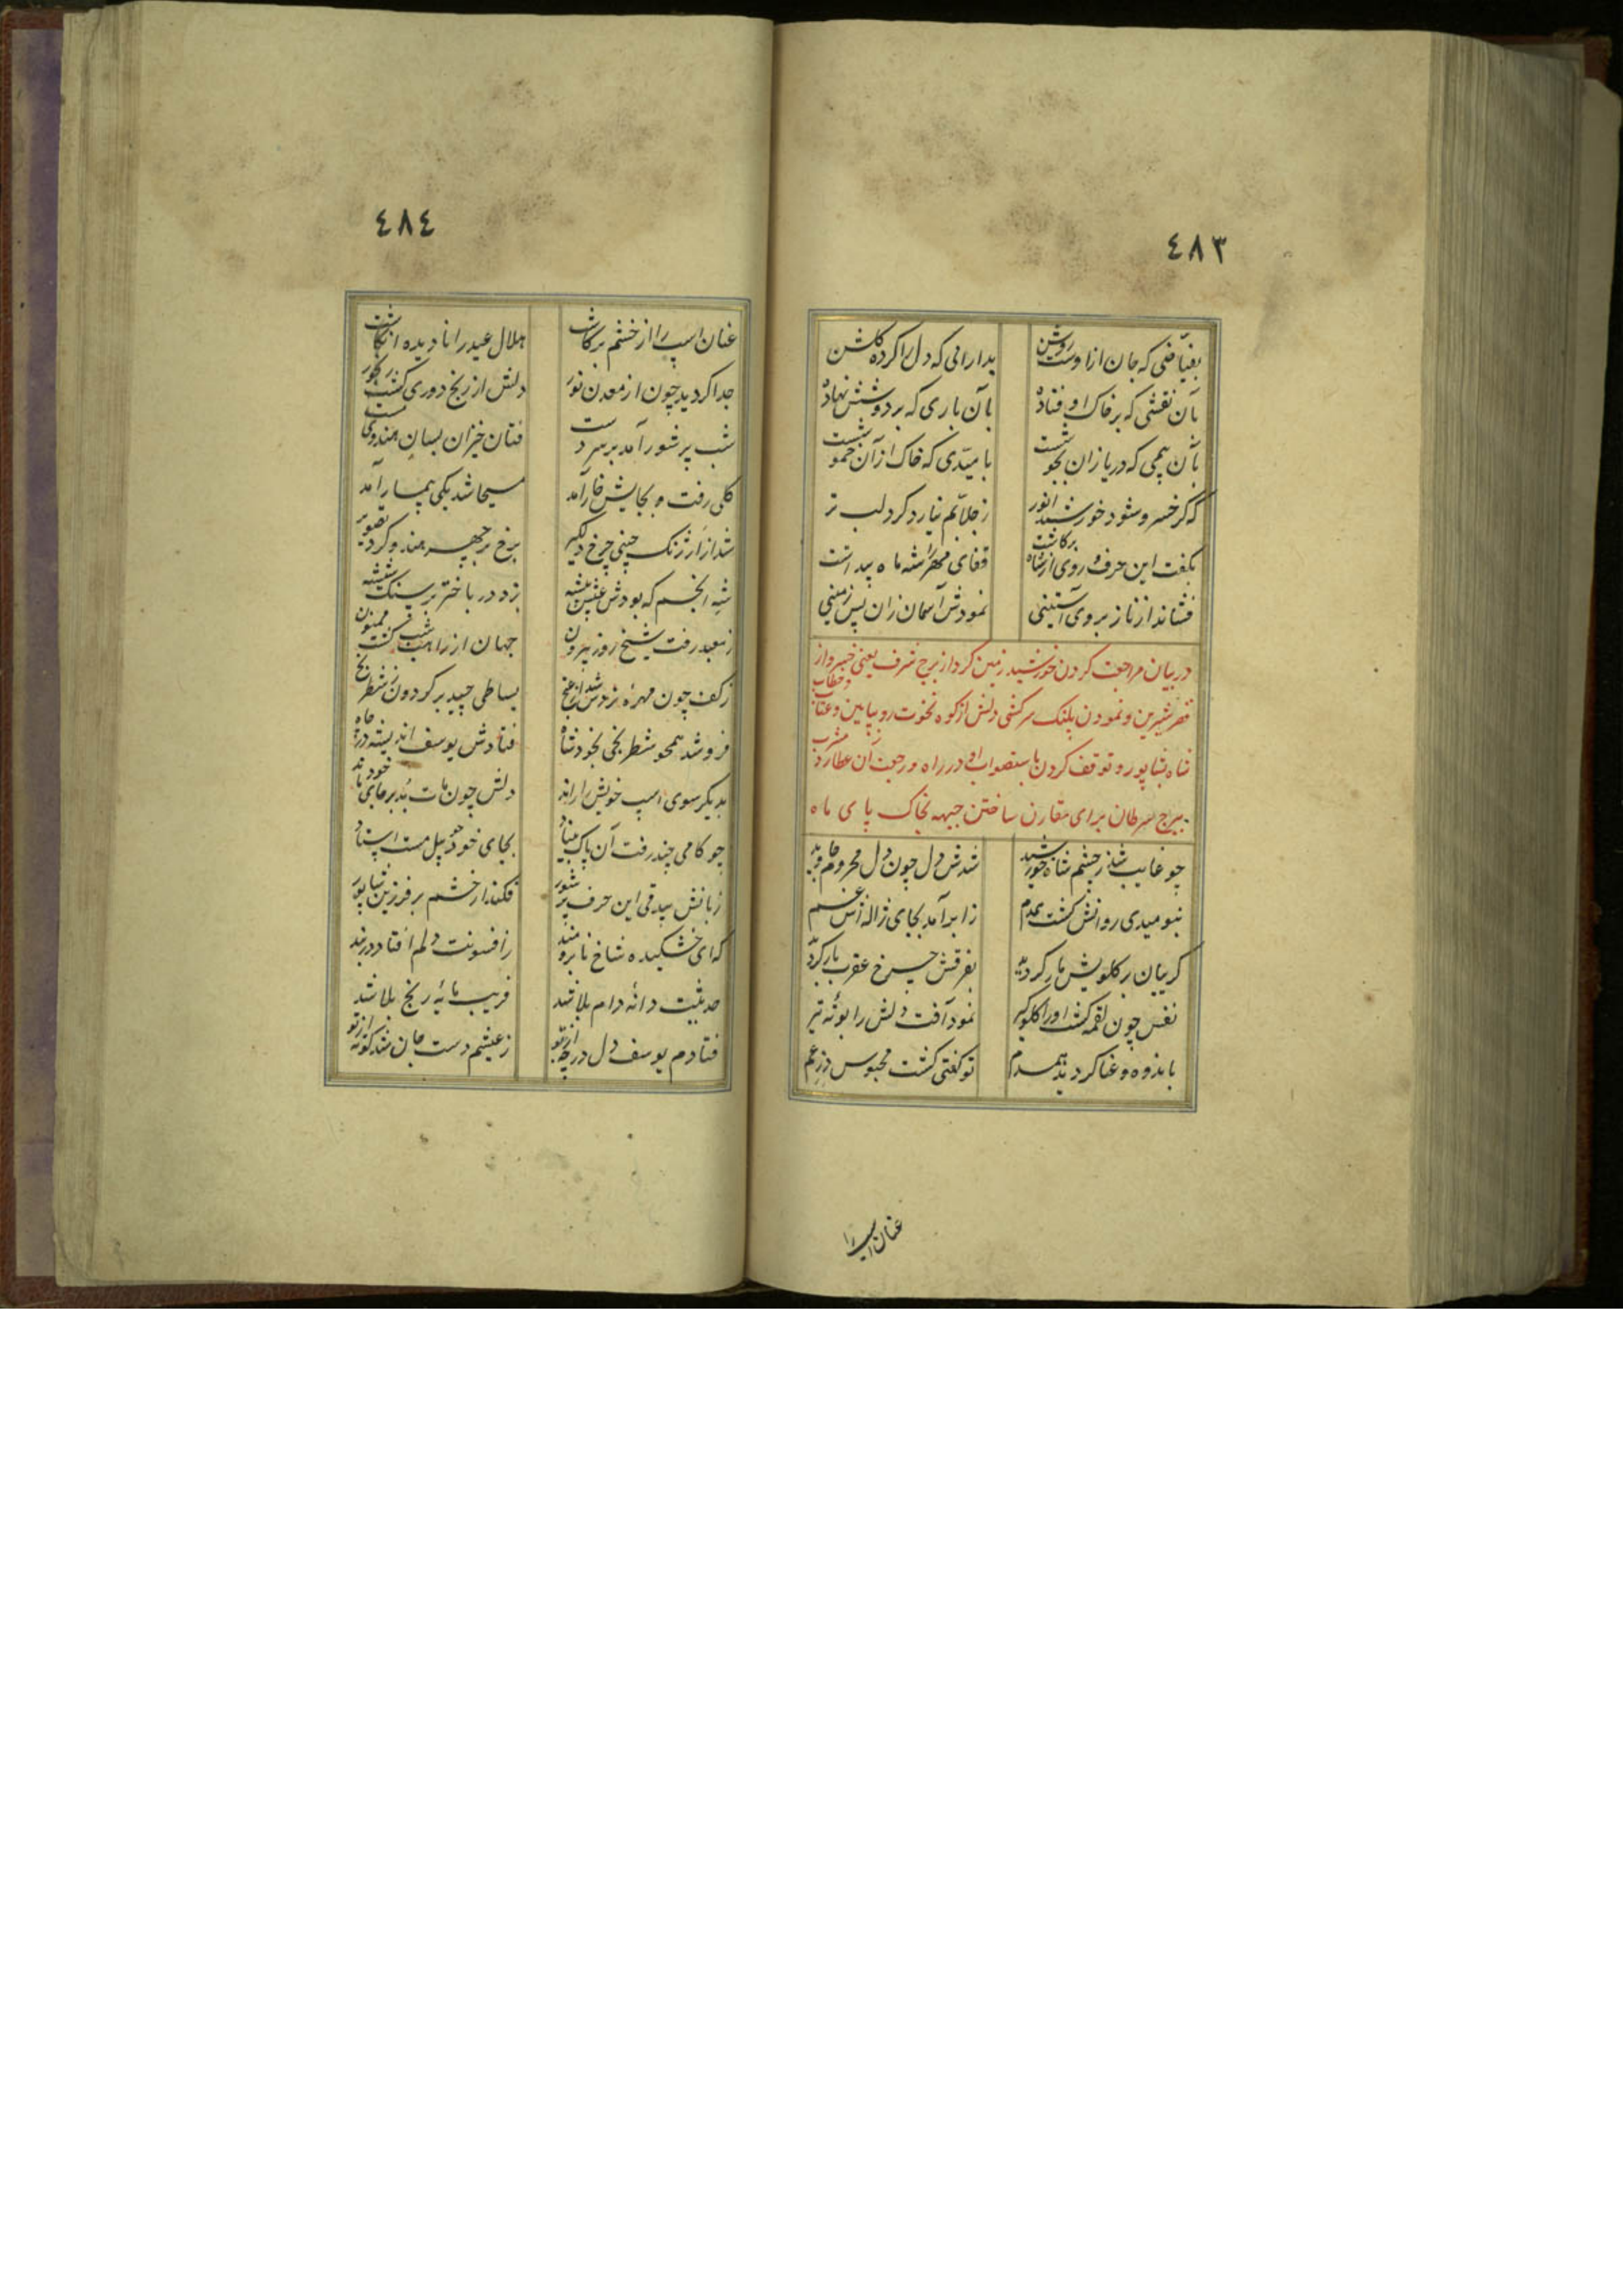 ٤٨٣
بفیّاضی که جان از اوست روشن بدارائی که دل را کرده گلشن
بآن نقشی که بر خاک او فتاده بآن باری که بر دوشش نهاده
بآن یمی که دریا زان بجوشست بامیّدی که خاک از آن خموشست
که گر خسرو شود خورشید انور ز جلاّبم نیارد کرد لب تر
بگفت این حرف و روی از شاه برکاشت قفای مهر را شه ماه پنداشت
فشاند از ناز بر وی آستینی نمودش آسمان زان پس زمینی
در بیان مراجعت کردن خورشید زمین گرد از برج شرف یعنی خسرو از
قصر شیرین و نمودن پلنک سرکشی دلش از کوه نخوت رو بپایین و عتاب و خطاب
شاه بشاپور و توقف کردن باستصواب او در راه و رجعت آن عطارد
ببرج سرطان برای مقارن ساختن جبهه بخاک پای ماه
چو غایب شد ز چشم شاه خورشید شدش دل چون دل محروم جاوید
بنومیدی روانش کشت همدم ز ابر آمد بجای ژاله اش غم
کریبان بر کلویش مار کردید بفرقش چرخ عقرب بار کردید
نفس چون لقمه کشت او را کلوکیر نمود آفت دلش را بوته تیر
باندوه و عنا کردید همدم تو کفتی کشت محبوس
عنان اسپ را
٤٨٤
عنان اسپ را از خشم برکاشت هلال عید را نادیده انکاشت
جدا کردید چون از معدن نور دلش از رنج دوری کشت رنجور
شب پر شور آمد بر سر دست فتان خیزان بسان هندوی مست
کلی رفت و بجایش خار آمد مسیحا شد یکی بیمار آمد
شد از ارژنک چینی چرخ دلکیر برخ بر چهر هندو کرد تصویر
شه انجم که بودش عیش پیشه زد در باختر بر سنک شیشه
ز معبد رفت شیخ روز بیرون جهان از راهب شب کشت ممنون
ز کف چون مهره زردش شد از عنج بساطی چید بر کردون ز شطرنج
فرو شد همچو شطرنجی بخود شاه فتادش یوسف اندیشه در چاه
بدیکر سوی اسپ خویش را راند دلش چون مات بد بر جای خود ماند
چو کامی چند رفت آن پاک بنیاد بجای خود چو پیل مست استاد
زبانش بیدقی این حرف پر شور فکند از خشم بر فرزین شاپور
که ای خشکیده شاخ نابرومند ز افسونت دلم افتاد در بند
حدیثت دانه دام بلا شد فریبت مایه رنج بلا شد
فتادم یوسف دل در چه از تو ز عیشم دست جان شد کوته از تو